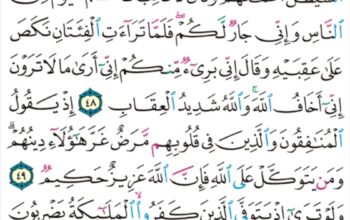 ٱلنَّاسِ وَإِنِّي جَارٌ لَّكُمْ ۖ فَلَمَّا تَرَآءَتِ ٱلْفِئَتَانِ نَكَصَ
عَلَىٰ عَقِبَيْهِ وَقَالَ إِنِّي بَرِيٓءٌ مِّنكُمْ إِنِّيٓ أَرَىٰ مَا لَا تَرَوْنَ
إِنِّيٓ أَخَافُ ٱللَّهَ ۚ وَٱللَّهُ شَدِيدُ ٱلْعِقَابِ ٤٨ إِذْ يَقُولُ
ٱلْمُنَٰفِقُونَ وَٱلَّذِينَ فِي قُلُوبِهِم مَّرَضٌ غَرَّ هَٰٓؤُلَآءِ دِينُهُمْ ۗ
وَمَن يَتَوَكَّلْ عَلَى ٱللَّهِ فَإِنَّ ٱللَّهَ عَزِيزٌ حَكِيمٌ ٤٩
وَلَوْ تَرَىٰٓ إِذْ يَتَوَفَّى ٱلَّذِينَ كَفَرُوا۟ ۙ ٱلْمَلَٰٓئِكَةُ يَضْرِبُونَ